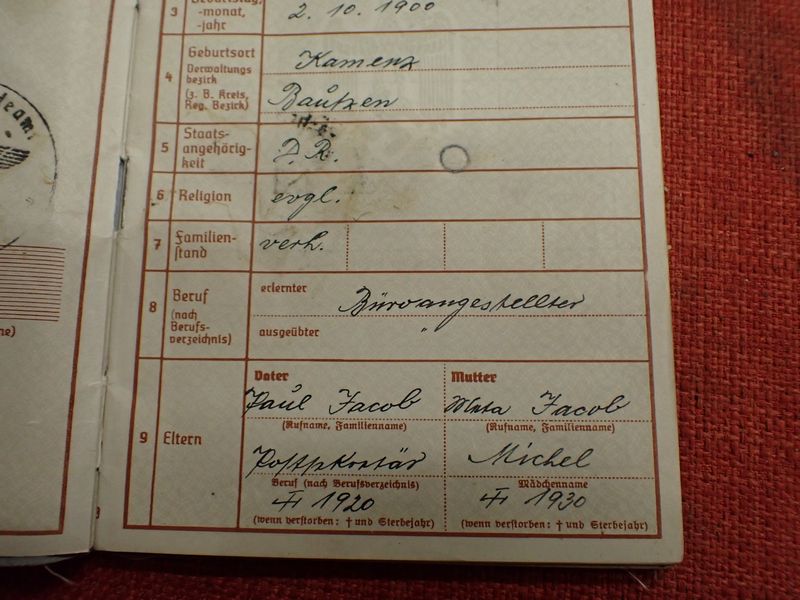 3 Geburtstag, -monat, -jahr 2. 10. 1900
4 Geburtsort Kamenz
Verwaltungsbezirk
(z. B. Kreis, Reg. Bezirk) Bautzen
5 Staats-
angehörig-
keit D. R.
6 Religion evgl.
7 Familien-
stand verh.
8 Beruf
(nach
Berufs-
verzeichnis)
erlernter Büroangestellter
ausgeübter "
9 Eltern
Vater Mutter
Paul Jacob Meta Jacob
(Rufname, Familienname) (Rufname, Familienname)
Postsekretär Michel
Beruf (nach Berufsverzeichnis) Mädchenname
† 1920 † 1930
(wenn verstorben: † und Sterbejahr) (wenn verstorben: † und Sterbejahr)